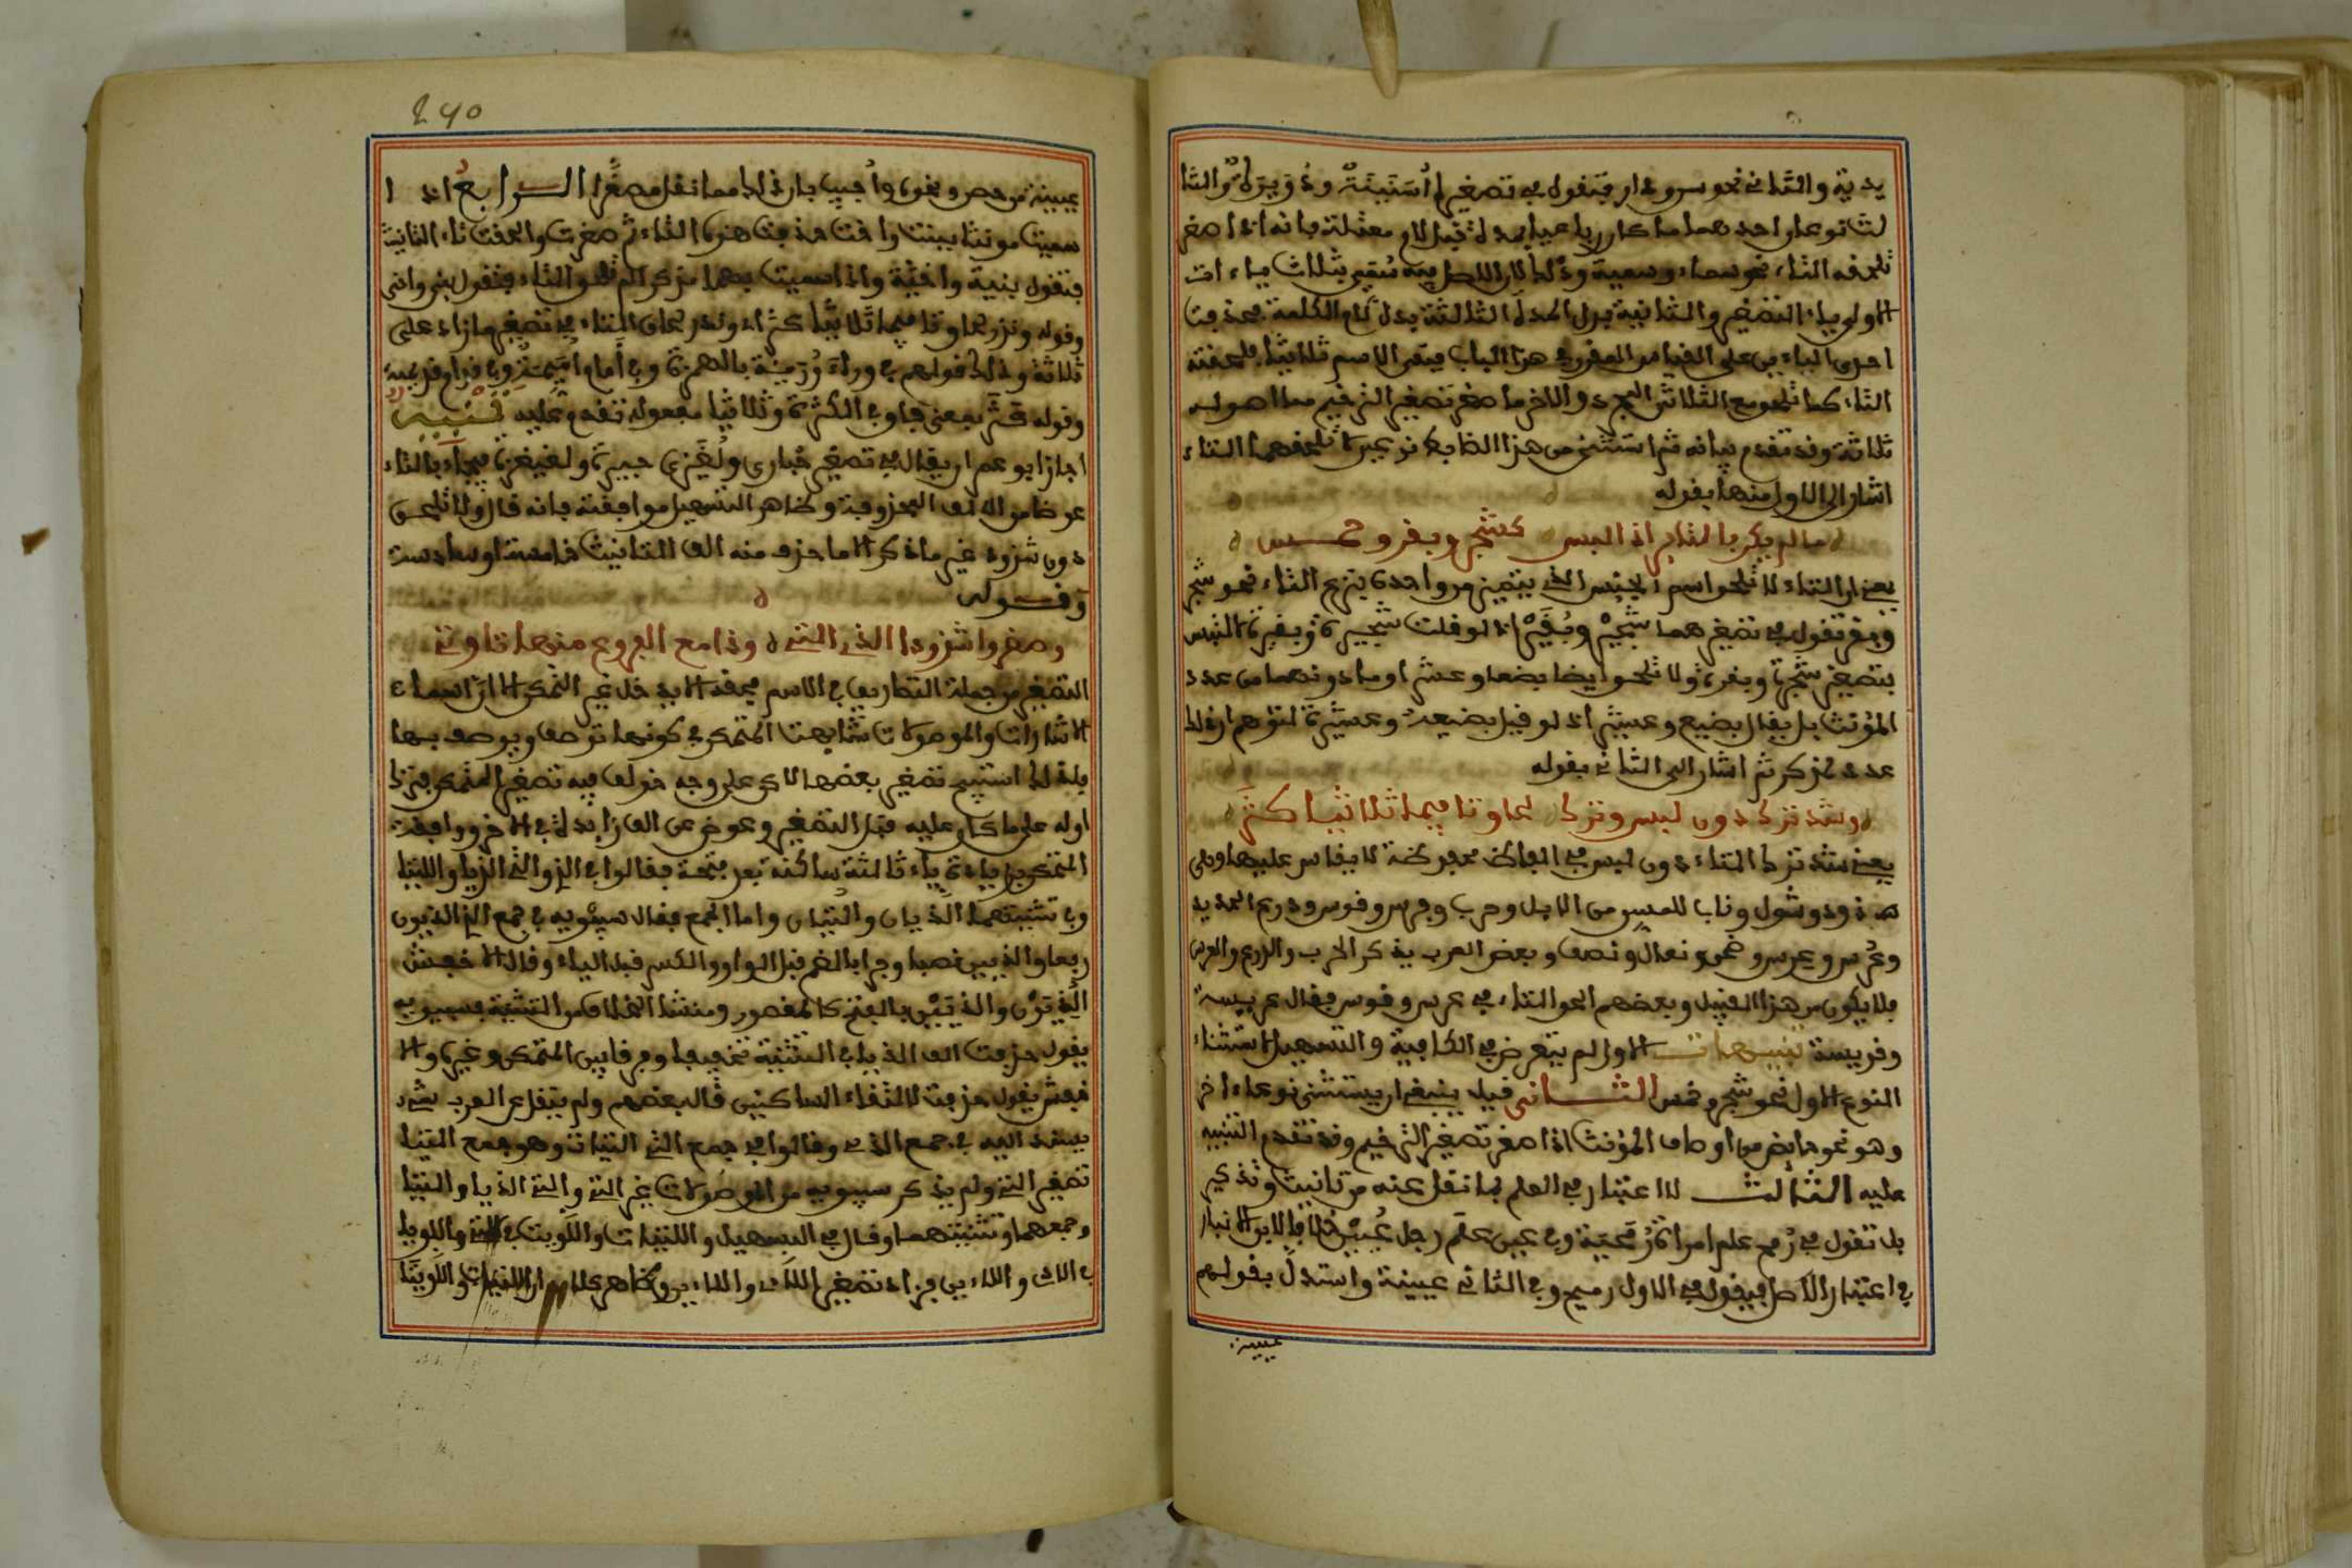 يدية والثانى نحو سن ودار فتقول فى تصغيرهما سنينة ودويرة والثا
لث نوعان احدهما ما كان رباعيا بمدة قبل لام معتلة فانه اذا صغر
تلحقه التاء نحو سماء وسمية وذلك لان الاصل فيه سميى بثلاث ياءات
الاولى ياء التصغير والثانية بدل المدة والثالثة بدل لام الكلمة فحذفت
احدى الياءين على القياس المقرر فى هذا الباب فبقى الاسم ثلاثيا فلحقته
التاء كما تلحق مع الثلاثى المجرد والاخر ما صغر تصغير الترخيم مما اصوله
ثلاثة وقد تقدم بيانه ثم استثنى من هذا الضابط نوعين لا تلحقهما التاء
اشار الى الاول منهما بقوله
ما لم يكن بالتا يرى ذا لبس كشجر وبقر وخمس
يعنى ان التاء لا تلحق اسم الجنس الذى يتميز من واحده بنزع التاء نحو شجر
وبقر فتقول فى تصغيرهما شجير وبقير اذ لو قلت شجيرة وبقيرة لالتبس
بتصغير شجرة وبقرة ولا تلحق ايضا بضعا وعشرا وما دونهما من عدد
المؤنث بل يقال بضيع وعشير اذ لو قيل بضيعة وعشيرة لتوهم ان ذلك
عدد مذكر ثم اشار الى الثانى بقوله
وشذ ترك دون لبس وندر لحاق تا فيما ثلاثيا كثر
يعنى شذ ترك التاء دون لبس فى الفاظ محفوظة لا يقاس عليها وهى
ذود وشول وناب للمسن من الابل وحرب وفرس وقوس ودرع الحديد
وعرس وضحى ونعل ونصف وبعض العرب يذكر الحرب والدرع والعرس
فلا يكون من هذا القبيل وبعضهم الحق التاء فى عرس وقوس فقال عريسة
وقويسة تنبيهات الاول لم يتعرض فى الكافية والتسهيل لاستثناء
النوع الاول نحو شجر وخمس الثانى قيل ينبغى ان يستثنى نوعا اخر
وهو نحو حائض من اوصاف المؤنث اذا صغر تصغير الترخيم وقد تقدم التنبيه
عليه الثالث لا اعتبار فى العلم بما نقل عنه من تانيث وتذكير
بل تقول فى رمح علم امراة رميحة وفى عين علم رجل عيين خلافا لابن الانبارى
فى اعتبار الاصل فيقول فى الاول رميح وفى الثانى عيينة واستدل بقولهم
عيينة
٢٩٥
عيينة بن حصن ونحوه واجيب بان ذلك مما نقل مصغرا الرابع اذا
سميت مونثا ببنت واخت حذفت هذه التاء ثم صغرت والحقت تاء التانيث
فتقول بنية واخية واذا سميت بهما مذكرا لم تلحق التاء فتقول بنى واخى
وقوله وندر لحاق تا فيما ثلاثيا كثر اى وندر لحاق التاء فى تصغير ما زاد على
ثلاثة وذلك قولهم فى وراء وريئة بالهمزة وفى امام اميمة وفى قدام قديديمة
وقوله كثر بمعنى فاق فى الكثرة وثلاثيا مفعوله تقدم عليه تنبيه
اجاز ابو عمر ان يقال فى تصغير حبارى ولغيزى حبيرة ولغيغزة فيجاء بالتاء
عوضا من الالف المحذوفة وظاهر التسهيل موافقته فانه قال ولا تلحق
دون شذوذ غير ما ذكر الا ما حذف منه الف التانيث خامسة او سادسة
وقوله
وصغروا شذوذا الذى التى وذا مع الفروع منها تا وتى
التصغير من جملة التصاريف فى الاسم فحقه الا يدخل غير المتمكن الا ان اسماء
الاشارات والموصولات شابهت المتمكن فى كونها توصف ويوصف بها
فلذلك استبيح تصغير بعضها لاكن على وجه خولف فيه تصغير المتمكن فترك
اوله على ما كان عليه قبل التصغير وعوض عن الف زائدة فى الاخر ووافقت
المتمكن فى زيادة ياء ثالثة ساكنة بعد فتحة فقالوا فى الذى والتى اللذيا واللتيا
وفى تثنيتهما اللذيان واللتيان واما الجمع فقال سيبويه فى جمع الذى اللذيون
رفعا واللذيين نصبا وجرا بالضم قبل الواو والكسر قبل الياء وقال الاخفش
اللذيون واللذيين بالفتح كالمقصور ومنشا الخلاف من التثنية فسيبويه
يقول حذفت الف اللذيا فى التثنية تخفيفا وفرقا بين المتمكن وغيره والا
خفش يقول حذفت لالتقاء الساكنين قال بعضهم ولم ينقل عن العرب شىء
يستند اليه فى جمع الذى وقالوا فى جمع التى اللتيات وهو جمع اللتيا
تصغير التى ولم يذكر سيبويه من الموصولات غير الذى والتى اللذيا واللتيا
وجمعهما وتثنيتهما وقال فى التسهيل واللتيات واللويتا فى اللاتى واللويا
فى اللاى واللاءين فزاد تصغير اللاى واللاءين وظاهر كلامه ان اللتيات واللويتا